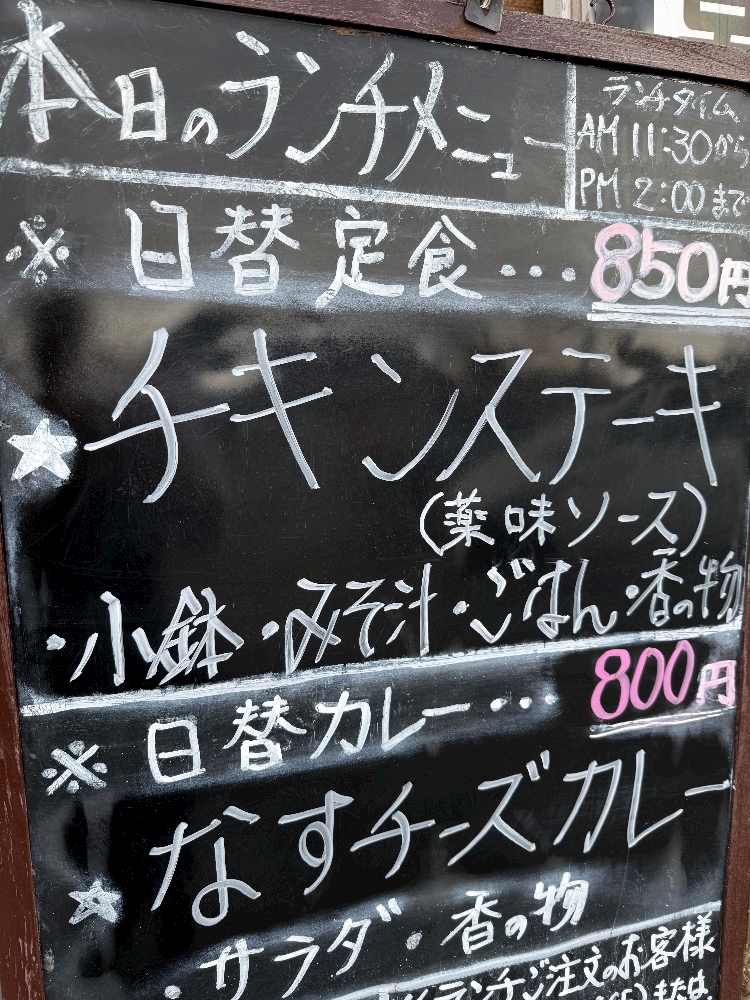 本日のランチメニュー
ランチタイム
AM 11:30から
PM 2:00まで
※ 日替定食・・・850円
★チキンステーキ
(薬味ソース)
・小鉢・みそ汁・ごはん・香の物
※ 日替カレー・・・800円
★なすチーズカレー
・サラダ・香の物
ランチご注文のお客様
または